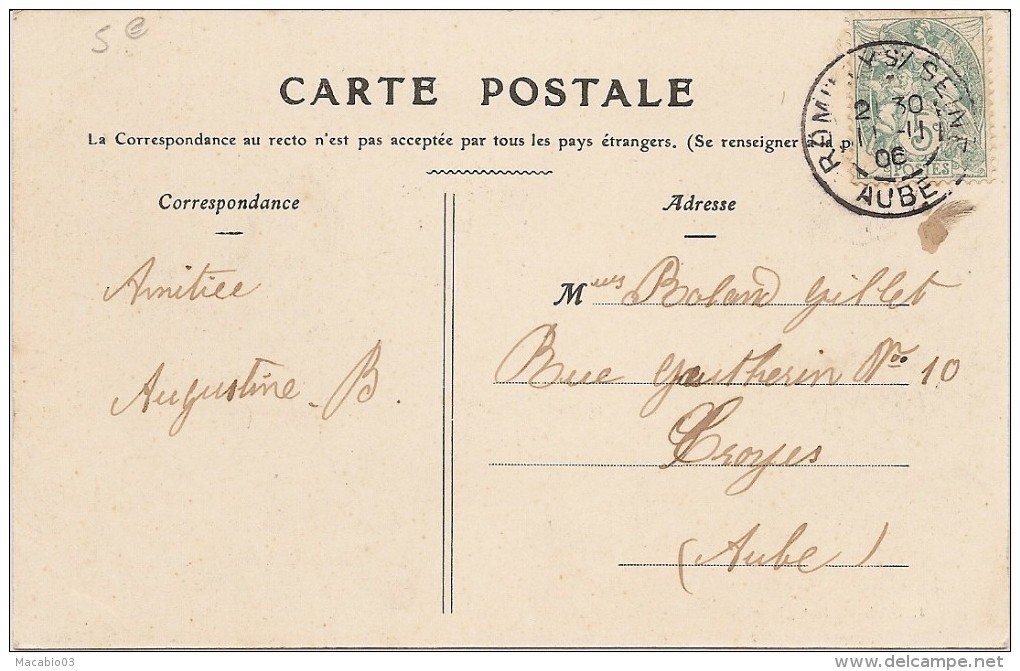 5 e
CARTE POSTALE
La Correspondance au recto n'est pas acceptée par tous les pays étrangers. (Se renseigner à la p
Correspondance
Amitiee
Augustine. B.
Adresse
Mmes Boland Gillet
Rue Gautherin No. 10
Troyes
(Aube)
ROMILLY S/ SEINE
2 30
1 -11
06
AUBE
5
POSTES
Macabio03
delcampe.net